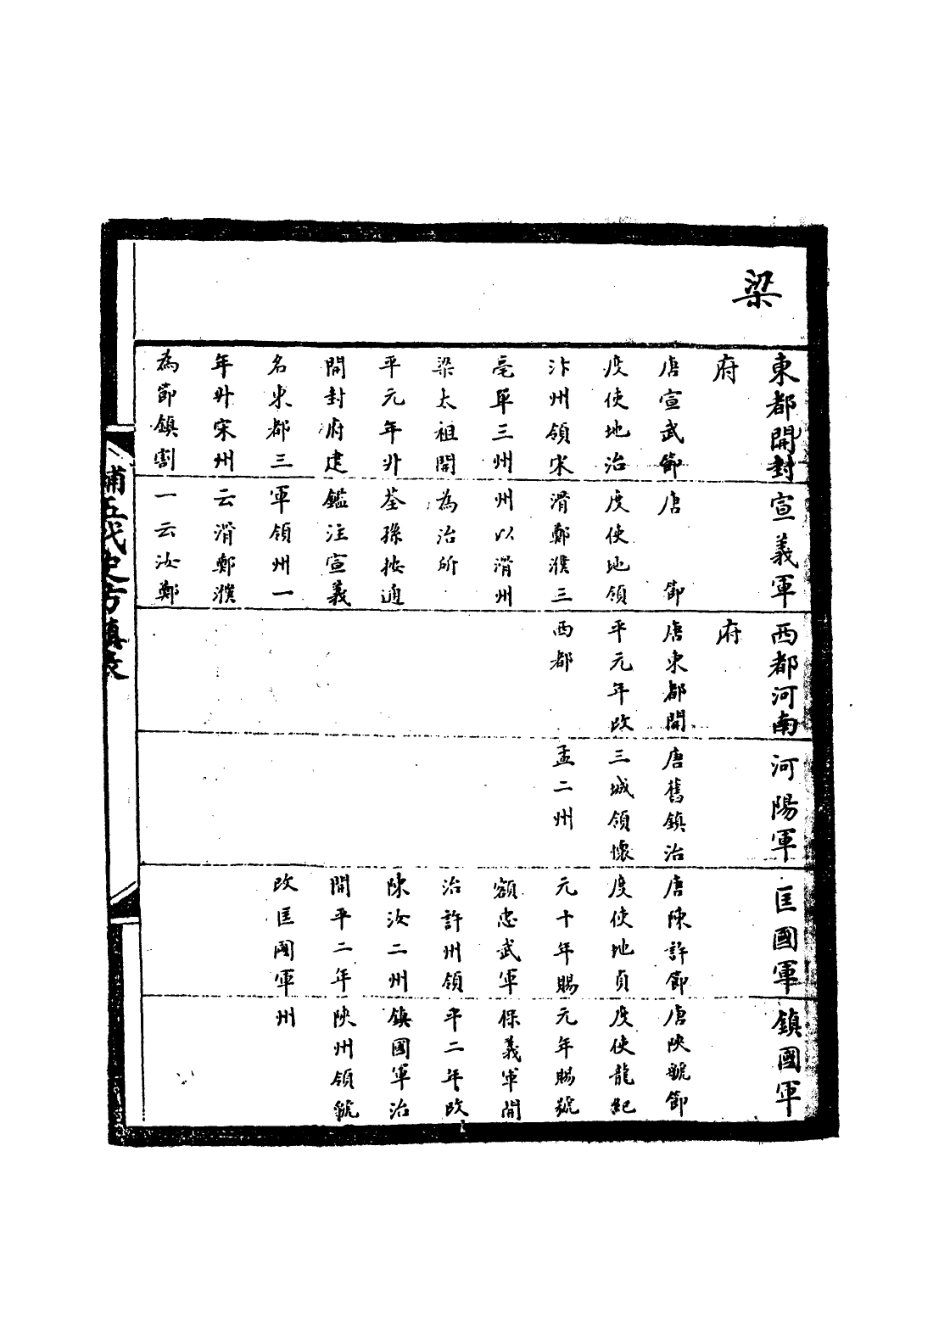 梁
東都開封
府
唐宣武節
度使地治
汴州領宋
亳單三州
梁太祖開
平元年升
開封府建
名東都三
年升宋州
為節鎮割
宣義軍
唐　節
度使地領
滑鄭濮三
州以滑州
為治所
荃孫按通
鑑注宣義
軍領州一
云滑鄭濮
一云汝鄭
西都河南
府
唐東都開
平元年改
西都
河陽軍
唐舊鎮治
三城領懷
孟二州
匡國軍
唐陳許節
度使地貞
元十年賜
額忠武軍
治許州領
陳汝二州
開平二年
改匡國軍
鎮國軍
唐陝虢節
度使龍紀
元年賜號
保義軍開
平二年改
鎮國軍治
陝州領虢
州
補五代史方鎮表